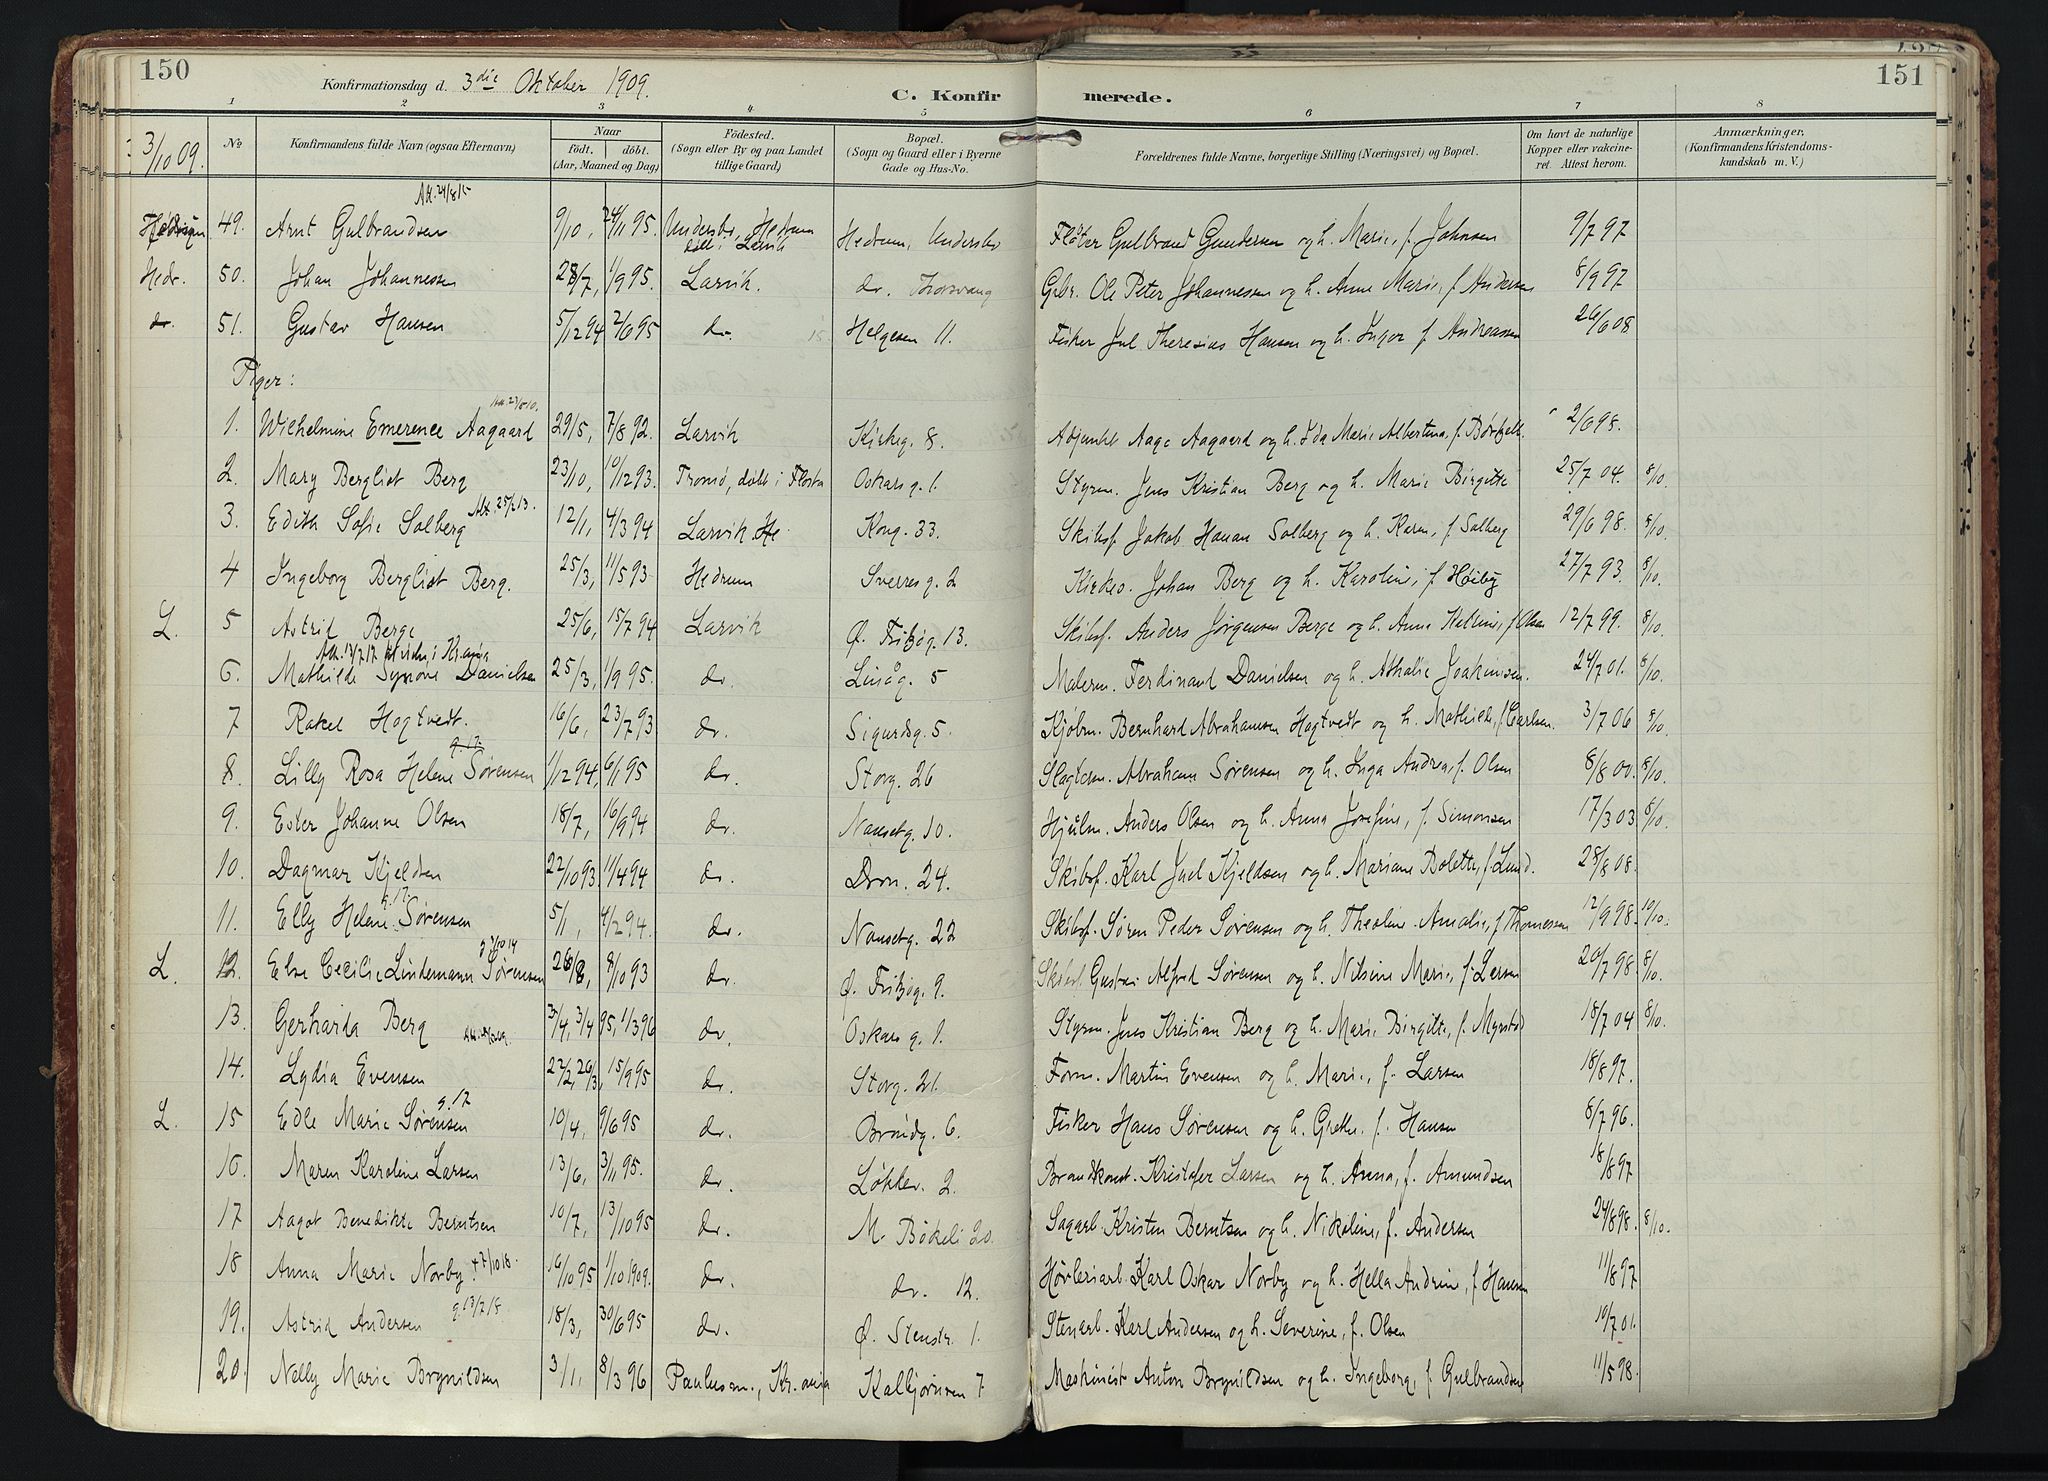 150
Konfirmationsdag d. 3die Oktober 1909.
C. Konfirmerede.
151
1 2 3 4 5 6 7 8
3/10 09.
No
Konfirmandens fulde Navn (ogsaa Efternavn)
Naar
Födt. döbt.
(Aar, Maaned og Dag)
Födested.
(Sogn eller By og paa Landet
tillige Gaard)
Bopæl.
(Sogn og Gaard eller i Byerne
Gade og Hus-No.
Forældrenes fulde Navne, borgerlige Stilling (Næringsvei) og Bopæl.
Om havt de naturlige
Kopper eller vakcine-
ret. Attest herom.
Anmærkninger.
(Konfirmandens Kristendoms-
kundskab m. V.)
Att. 24/8 15
49. Arnt Gulbrandsen 9/10, 24/11 95. Undersbo, Hedrum Hedrum, Undersbo Fløter Gulbrand Gundersen og h. Marie, f. Johnsen 9/7 97
Hedr. 50. Johan Johannessen 28/7, 1/9 95. Larvik. do. Torsvang Grbr. Ole Peter Johannessen og h. Anne Marie, f. Andersen 8/9 97
do. 51. Gustav Hansen 5/12 94 2/6 95 do. Helgesen 11. Fisker Jul Theresius Hansen og h. Inger f. Andreassen 26/6 08
Piger:
1. Wilhelmine Emerence Aagaard 29/5, 7/8 92. Larvik Kirkeg. 8. Adjunkt Aage Aagaard og h. Ida Marie Albertina, f. 2/6 98.
2. Mary Bergliot Berg 23/10, 10/12 93. Tromø, døbt i Flosta Oskars g. 1. Styrm. Jens Kristian Berg og h. Marie Birgitte 25/7 04. 8/10.
3. Edith Sofie Solberg 12/1, 4/3 94 Larvik. He Kong. 33. Skibsf. Jakob Hanan Solberg og h. Karen, f. Solberg 29/6 98. 8/10.
4 Ingeborg Bergliot Berg. 25/3, 11/5 93. Hedrum Sverres g. 2 Kirkeo. Johan Berg og h. Karoline, f. Høiby 27/7 93. 8/10.
L. 5 Astrid Berge 25/6, 15/7 94 Larvik Ø. Fritzøg. 13. Skibsf. Anders Jørgensen Berge og h. Anne Katrine, f. Olsen 12/7 99. 8/10.
6. Mathilde Synøve Danielsen 25/3, 1/9 95. do. Linåg. 5 Malerm. Ferdinand Danielsen og h. Athalie Joakimsen. 24/7 01. 8/10.
7 Rakel Hogtvedt. 16/6, 23/7 93 do. Sigurdsg. 5. Kjøbm. Bernhard Abrahamsen Hogtvedt og h. Mathilde, f. Carlsen. 3/7 06 8/10.
g. 17
8. Lilly Rosa Helene Sørensen 1/12 94, 6/1 95 do. Storg. 26 Slagterm. Abraham Sørensen og h. Inga Andrea, f. Olsen 8/8 00. 8/10.
9. Ester Johanne Olsen 18/7, 16/9 94 do. Nansetg. 10. Hjulm. Anders Olsen og h. Anna Josefine, f. Simonsen 17/3 03 8/10.
10. Dagmar Kjeldsen 22/10 93. 11/4 94 do. Dron. 24. Skibsf. Karl Juel Kjeldsen og h. Mariane Bolette, f. Lund. 28/8 08.
g. 17.
11. Elly Helene Sørensen 5/1, 4/2 94. do. Nansetg. 22 Skibsf. Søren Peder Sørensen og h. Thealine Amalie, f Thomessen 12/9 98. 10/10.
L. 12. Else Cecilie Lindemann Sørensen 26/8, 8/10 93 do. Ø. Fritzøg. 9. Gustav Alfred Sørensen og h. Nilsine Marie, f. Larsen 20/7 98. 8/10.
13. Gerharda Berg 3/4, 3/4 95, 1/3 96 do. Oskars g. 1. Styrm. Jens Kristian Berg og h. Marie Birgitte, f. 18/7 04 8/10.
14. Lydia Evensen 22/2, 26/3, 15/9 95 do. Storg. 21. Form. Martin Evensen og h. Marie, f. Larsen 18/8 97.
g. 17
L. 15 Edle Marie Sørensen 10/4, 9/6 95 do. Brøndg. 6. Fisker Hans Sørensen og h. Grethe, f. Hansen 8/7 96.
16. Maren Karoline Larsen 13/6, 3/11 95. do. Løkker. 2. Brandkonst. Kristofer Larsen og h. Anna, f. Amundsen 18/8 97
17 Aagot Benedikte Berntsen 10/7, 13/10 95 do. M. Bøkeli 20. Sagarb. Kristen Berntsen og h. Nikoline, f. Andersen 24/8 98. 8/10.
18 Anna Marie Norby. + 7/10 18. 16/10 95 1/10 1909. do. do. 12. Høvleriarb. Karl Oskar Norby og h. Hella Andrine, f Hansen 11/8 97
19. Astrid Andersen g. 13/7 18. 18/3, 30/6 95 do. Ø. Stenstr. 1. Stenarb. Karl Andersen og h. Severine, f. Olsen 10/7 01.
20. Nelly Marie Brynildsen 3/1, 8/3 96 Paulusm., Kr.ania Kolbjørnsen 7 Maskinist Anton Brynildsen og h. Ingeborg, f Gulbrandsen 11/5 98.